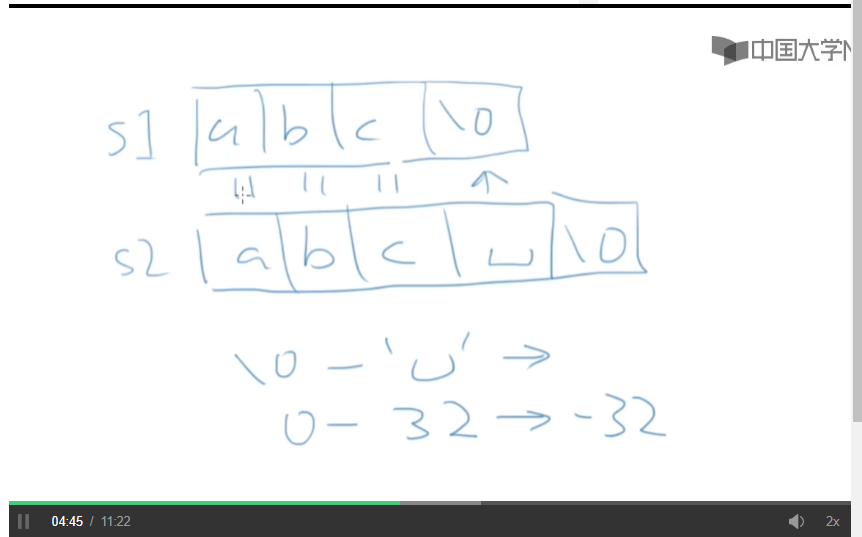 中国大学M
s1 a b c \0
= = =
s2 a b c ␣ \0
\0 - '␣' →
0 - 32 → -32
04:45 / 11:22 2x